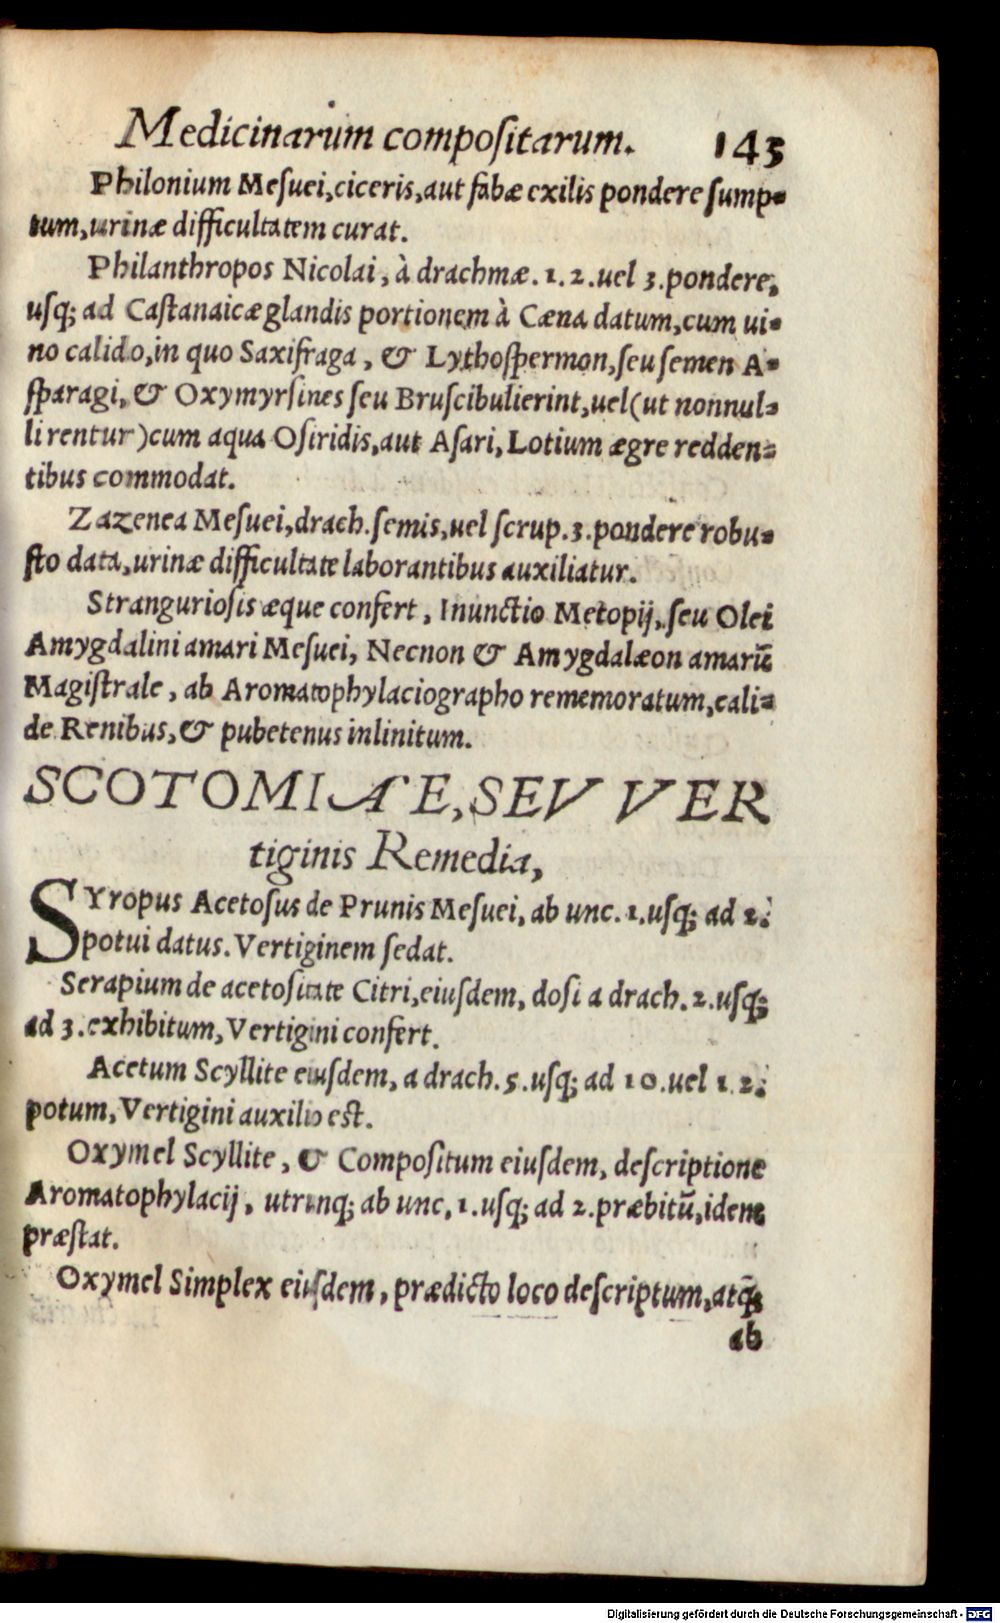 Medicinarum compoſitarum. 143
Philonium Meſuei, ciceris, aut fabæ exilis pondere ſump-
tum, urinæ difficultatem curat.
Philanthropos Nicolai, à drachmæ. 1. 2. uel 3. pondere,
uſq; ad Caſtanaicæ glandis portionem à Cæna datum, cum ui-
no calido, in quo Saxifraga, & Lythoſpermon, ſeu ſemen A-
ſparagi, & Oxymyrſines ſeu Bruſcibulierint, uel (ut nonnul-
li rentur) cum aqua Oſiridis, aut Aſari, Lotium ægre redden-
tibus commodat.
Zazenea Meſuei, drach. ſemis, uel ſcrup. 3. pondere robu-
ſto data, urinæ difficultate laborantibus auxiliatur.
Stranguriosis æque confert, Inunctio Metopij, ſeu Olei
Amygdalini amari Meſuei, Necnon & Amygdalæon amarū
Magiſtrale, ab Aromatophylaciographo rememoratum, cali-
de Renibus, & pubetenus inlinitum.
SCOTOMIAE, SEV VER
tiginis Remedia,
SYropus Acetoſus de Prunis Meſuei, ab unc. 1. uſq; ad 2.
potui datus. Vertiginem ſedat.
Serapium de acetoſitate Citri, eiuſdem, doſi a drach. 2. uſq;
ad 3. exhibitum, Vertigini confert.
Acetum Scyllite eiuſdem, a drach. 5. uſq; ad 10. uel 12.
potum, Vertigini auxilio eſt.
Oxymel Scyllite, & Compoſitum eiuſdem, deſcriptione
Aromatophylacij, utrinq; ab unc. 1. uſq; ad 2. præbitū, idem
præſtat.
Oxymel Simplex eiuſdem, prædicto loco deſcriptum, atq̃;
ab
Digitalisierung gefördert durch die Deutsche Forschungsgemeinschaft - DFG